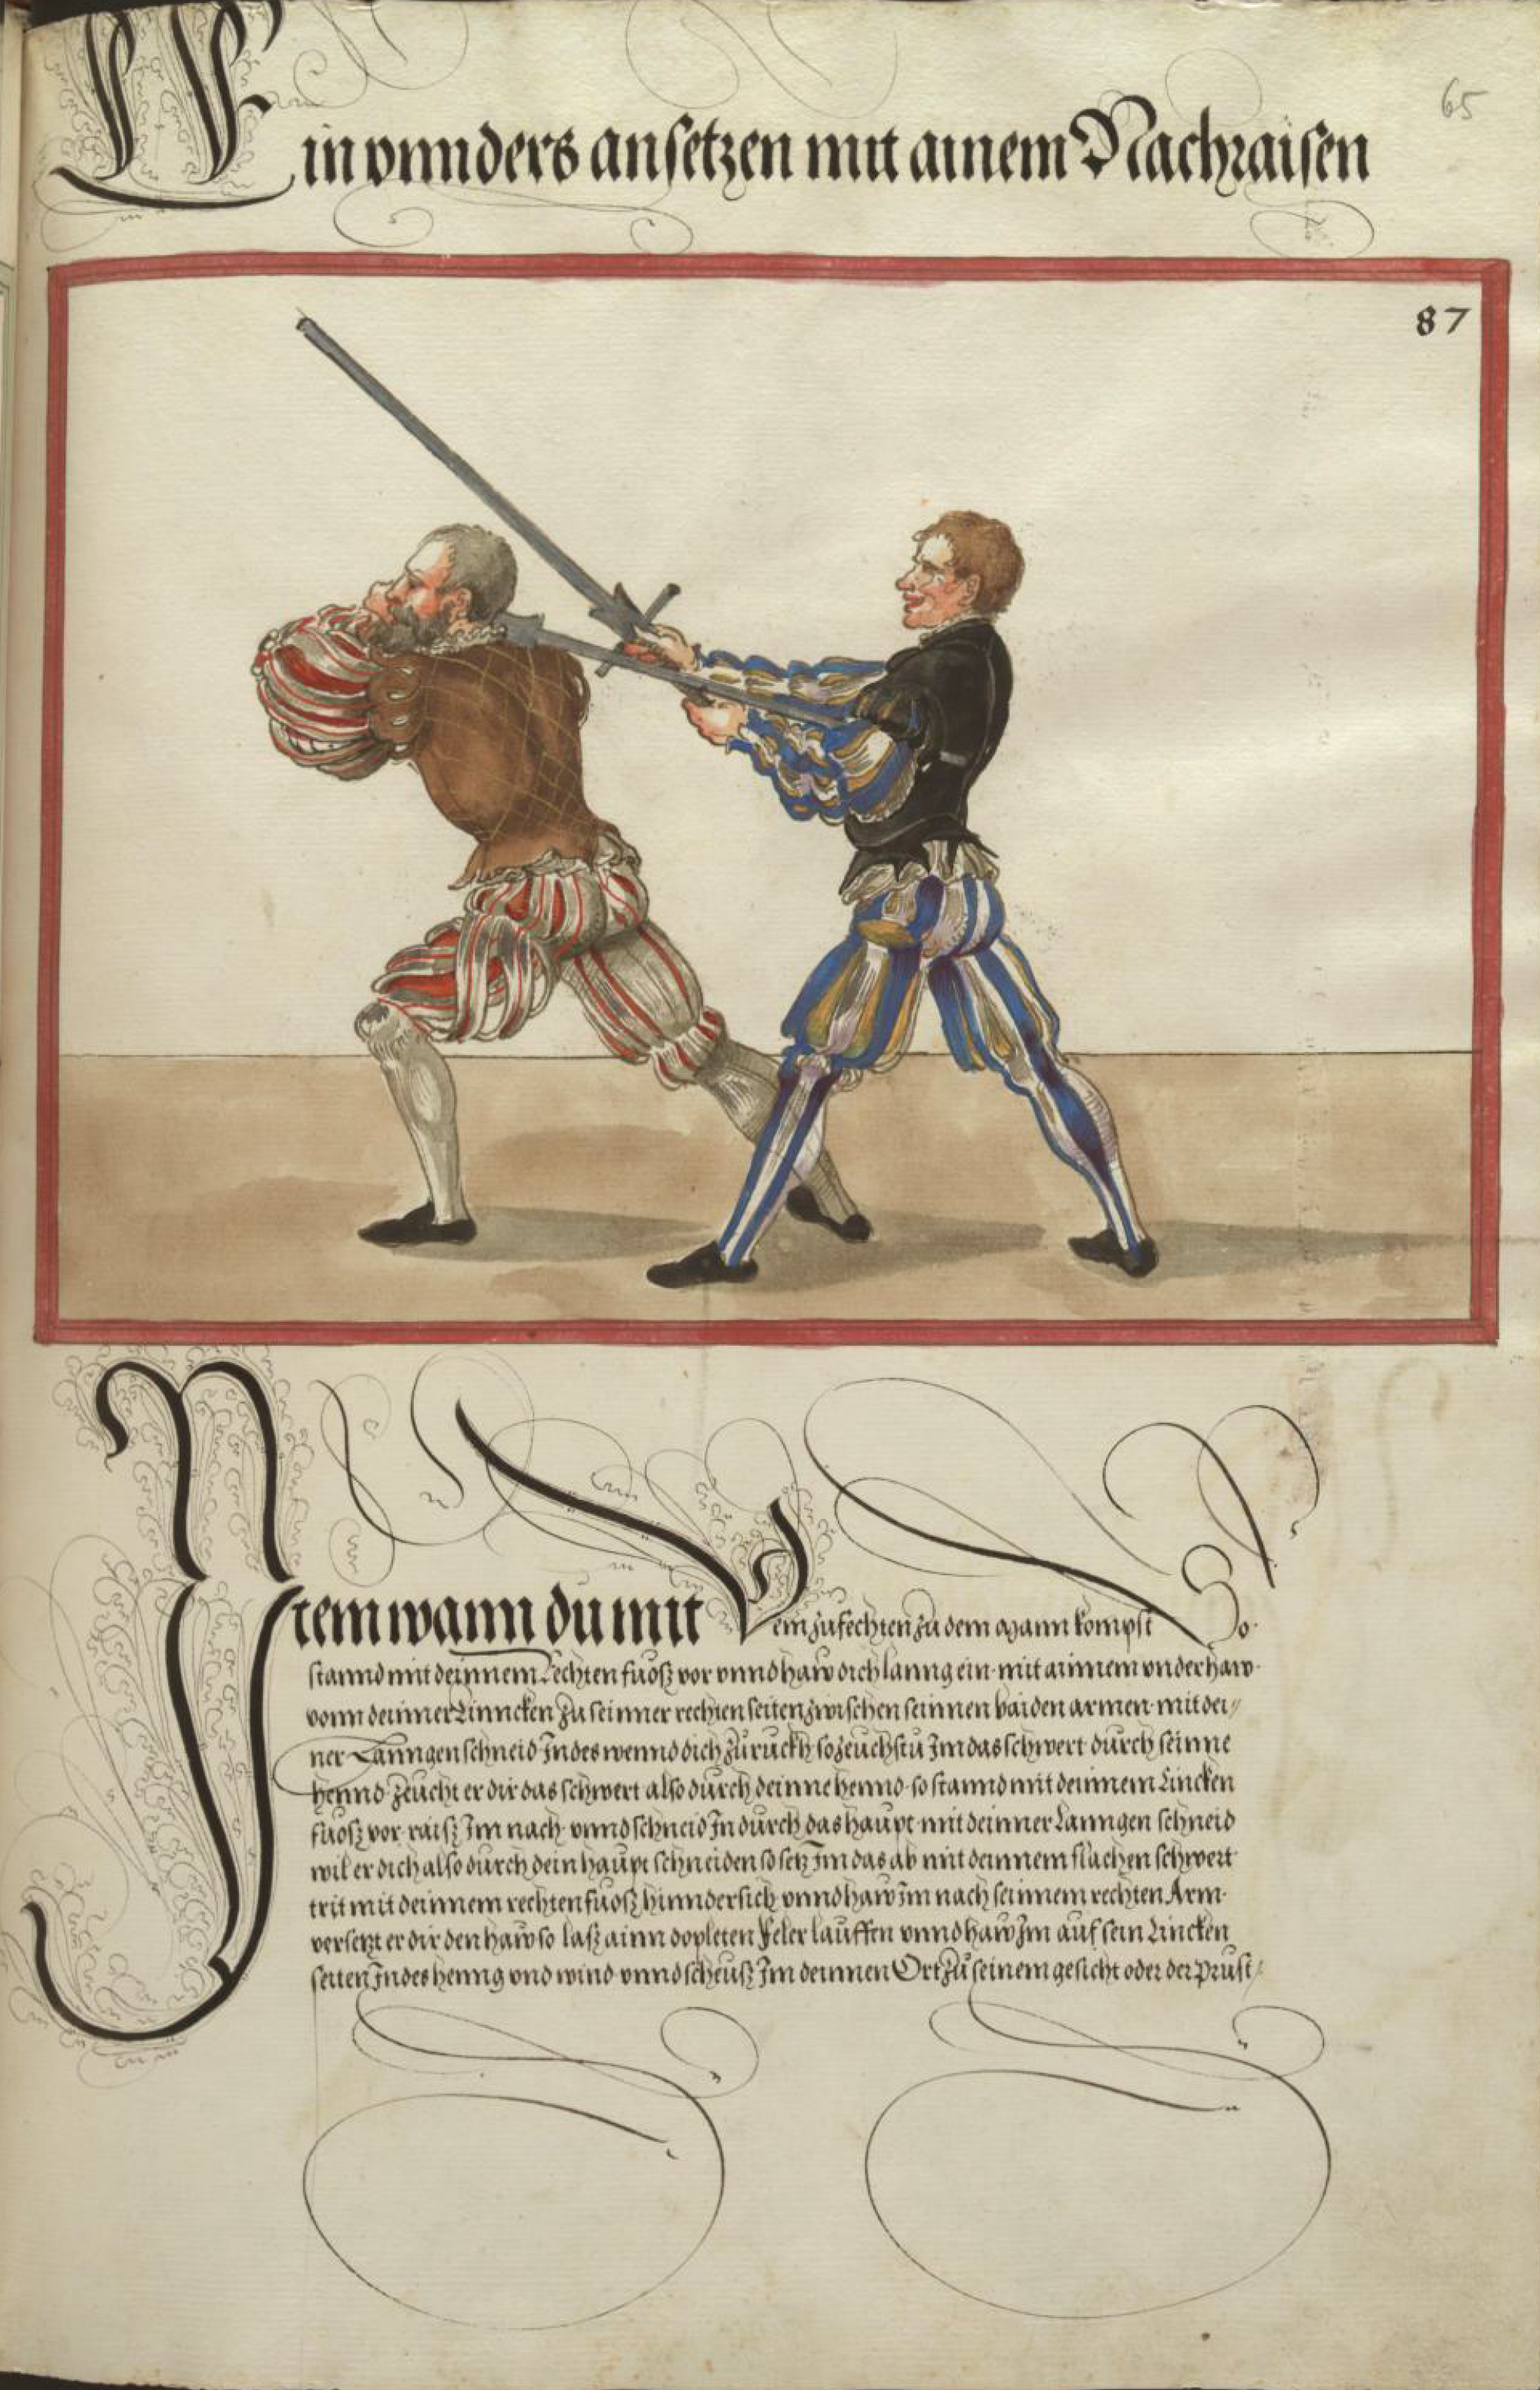 65
Ein vnnders ansetzen mit ainem Nachraisen
87
Item wann du mit dem zufechten zu dem Mann kompst So
stannd mit deinnem Rechten fuosz vor vnnd haw dich lanng ein mit ainnem vnderhaw
vonn deinner Linncken zu seinner rechten seiten zwischen seinnen baiden armen mit dei„
ner Lanngen schneid Indes wennd dich zuruckh so zeuchstu Im das schwert durch seinne
hennd zeucht er dir das schwert also durch deinne hennd so stannd mit deinnem Lincken
fuosz vor raisz Im nach vnnd schneid In durch das haupt mit deinner Lanngen schneid
wil er dich also durch dein haupt schneiden so setz Im das ab mit deinnem flachen schwert
trit mit deinnem rechten fuosz hinndersich vnnd haw Im nach seinnem rechten Arm
versetzt er dir den haw so lasz ainn dopleten Feler lauffen vnnd haw Im auf sein Lincken
seiten Indes henng vnd wind vnnd scheusz Im deinnen Ort zu seinem gesicht oder der prust